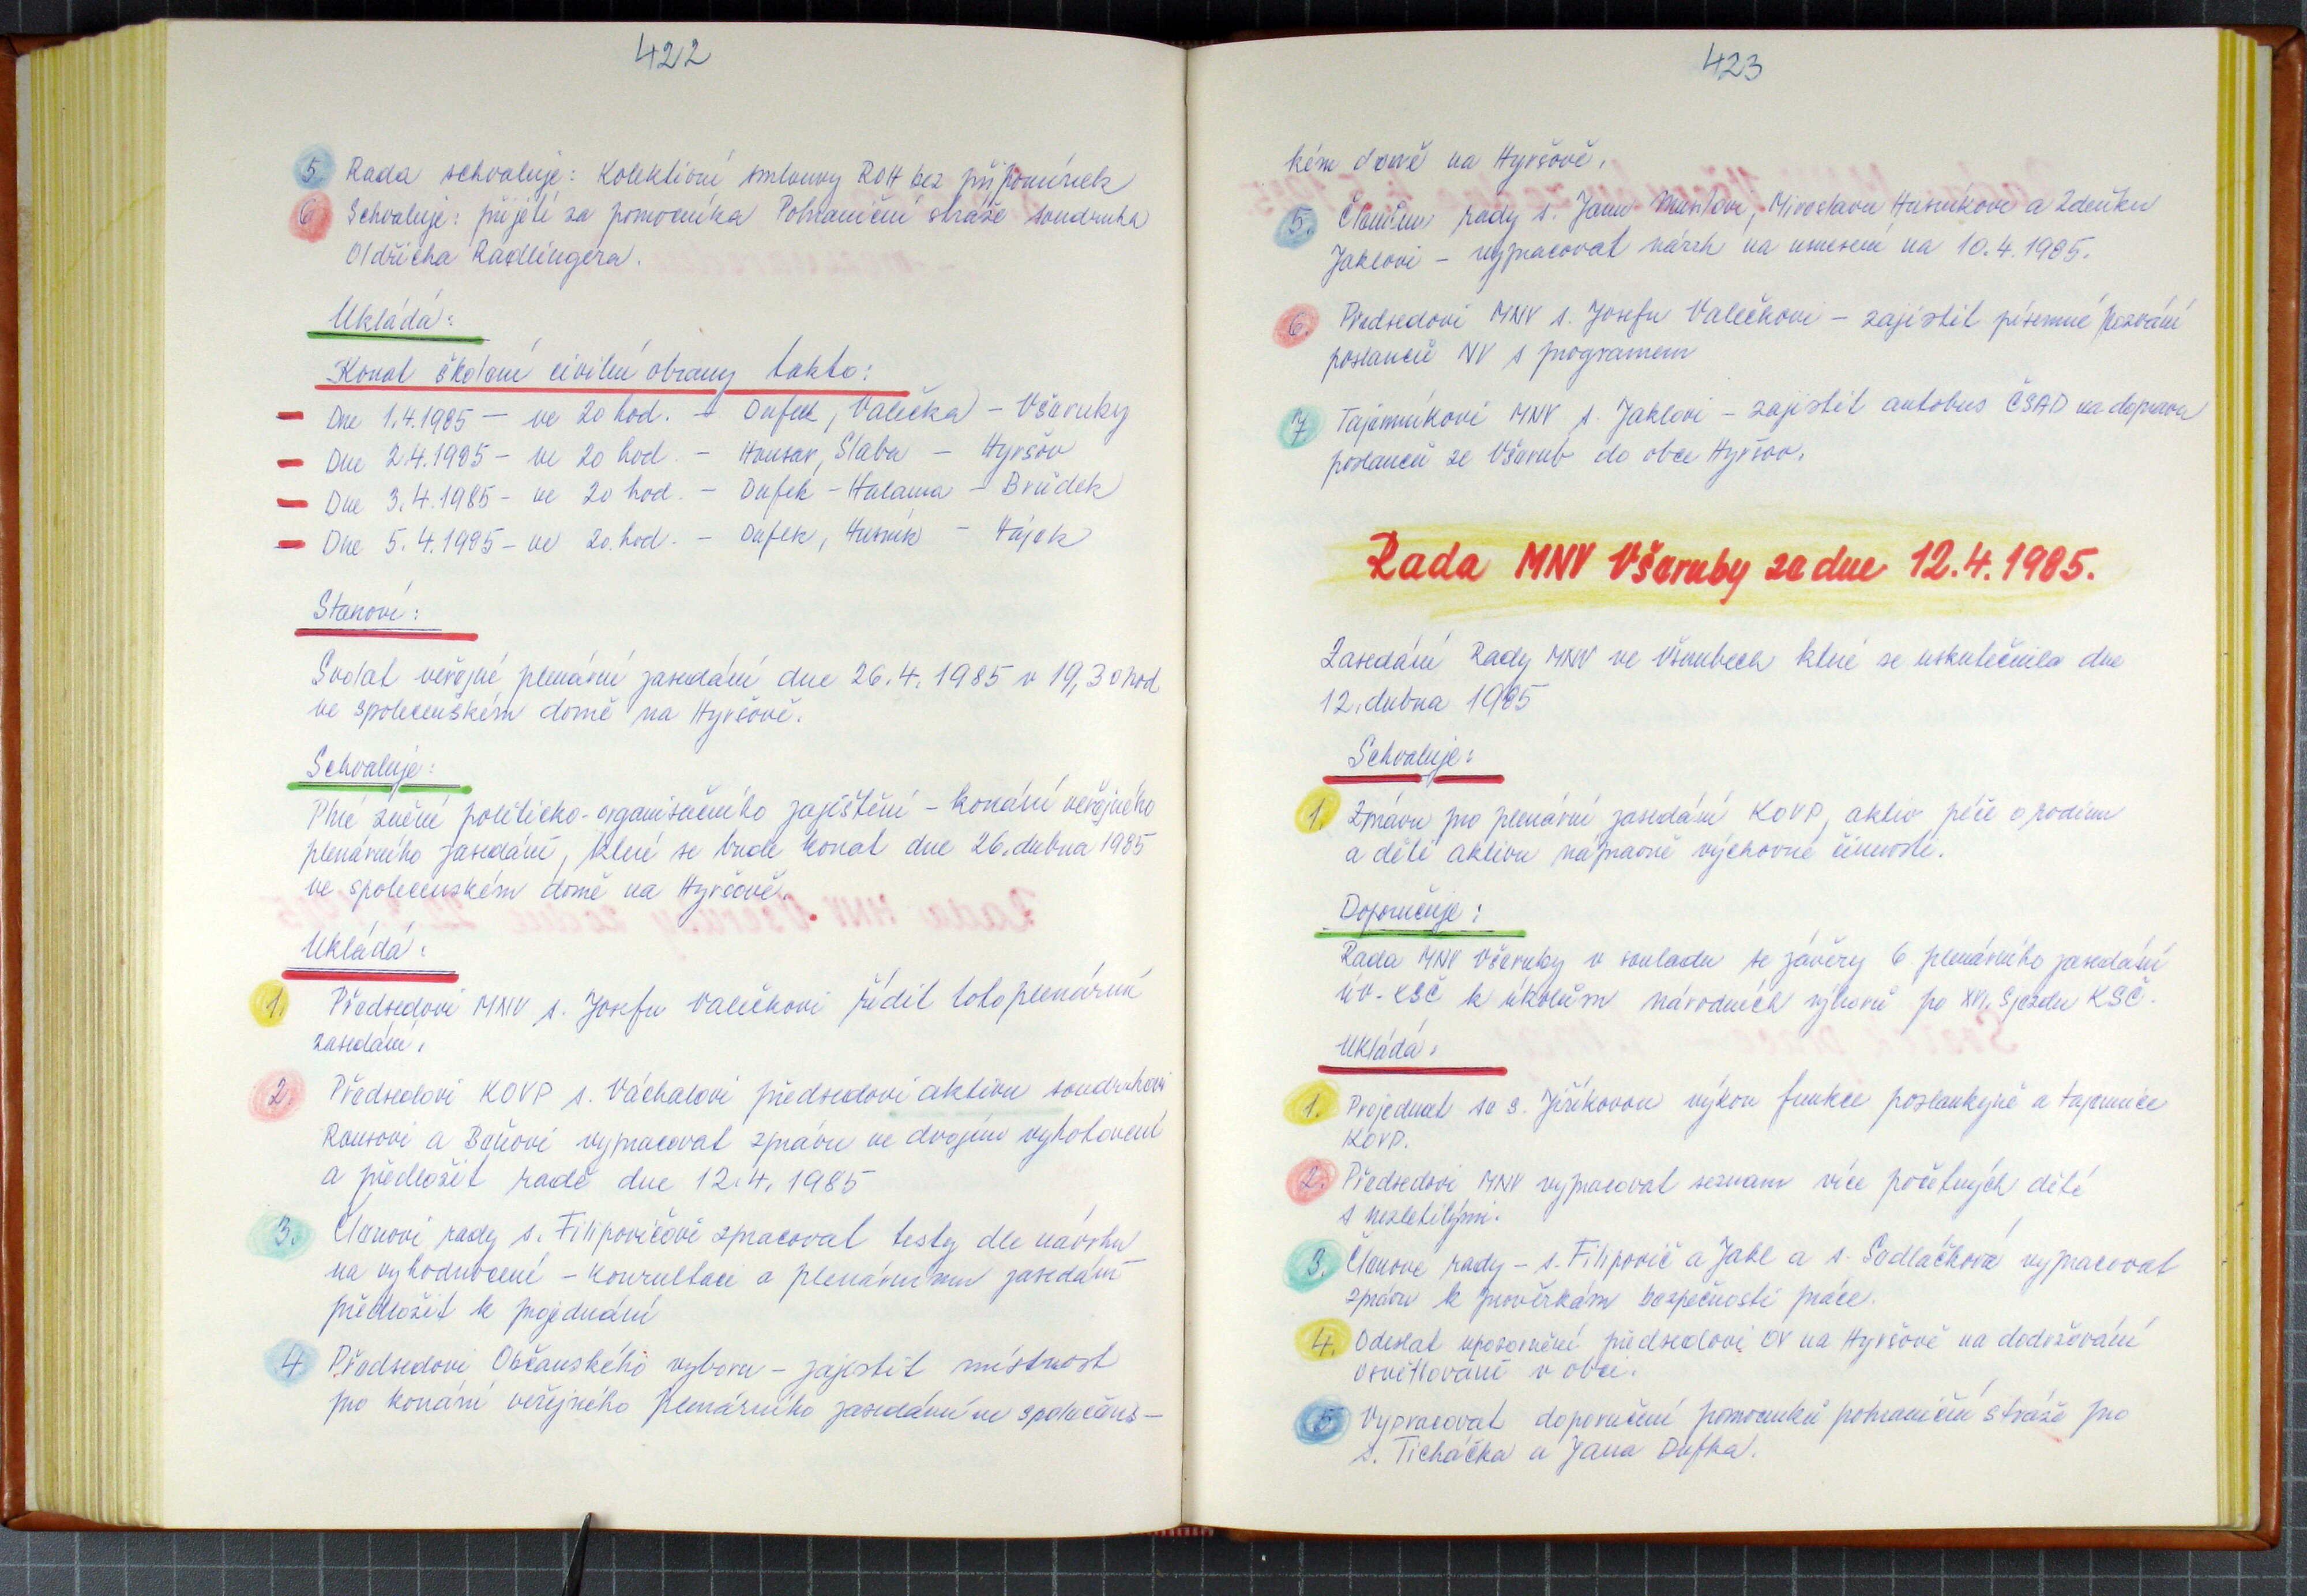 422
5. Rada schvaluje: Kolektivní smlouvy ROH bez připomínek
6. Schvaluje: přijetí za pomocníka Pohraniční stráže soudruha
Oldřicha Radlingera.
Ukládá:
Konat školení civilní obrany takto:
Dne 1.4.1985 – ve 20 hod. – Dufek, Valečka – Všeruby
Dne 2.4.1985 – ve 20 hod. – Housar, Slaba – Hyršov
Dne 3.4.1985 – ve 20 hod. – Dufek – Halama – Brůdek
Dne 5.4.1985 – ve 20. hod. – Dufek, Husník – Hájek
Stanoví:
Svolat veřejné plenární zasedání dne 26.4.1985 v 19,30 hod
ve společenském domě na Hyršově.
Schvaluje:
Plné znění politicko-organisačního zajištění – konání veřejného
plenárního zasedání, které se bude konat dne 26. dubna 1985
ve společenském domě na Hyršově.
Ukládá:
1. Předsedovi MNV s. Josefu Valečkovi řídit toto plenární
zasedání.
2. Předsedovi KOVP s. Váchalovi předsedovi aktivu soudruhovi
Rousovi a vypracovat zprávu ve dvojím vyhotovení
a předložit radě dne 12.4.1985
3. Členovi rady s. Filipovičově zpracovat testy dle návrhu
na vyhodnocení – konzultaci a plenárnímu zasedání
předložit k projednání
4. Předsedovi Občanského výboru – zajistit místnost
pro konání veřejného plenárního zasedání ve společens–
423
kém domě na Hyršově.
5. Členům rady s. Janu Miroslavu Husníkovi a Zdeňku
Jaklovi – vypracovat návrh na usnesení na 10.4.1985.
6. Předsedovi MNV s. Josefu Valečkovi – zajistit písemné pozvání
poslanců NV s programem
7. Tajemníkovi MNV s. Jaklovi – zajistit autobus ČSAD na dopravu
poslanců ze Všerub do obce Hyršov.
Rada MNV Všeruby ze dne 12.4.1985.
Zasedání Rady MNV ve Všerubech které se uskutečnilo dne
12. dubna 1985
Schvaluje:
1. Zprávu pro plenární zasedání KOVP, aktiv péče o rodinu
a děti aktivu nápravně výchovné činnosti.
Doporučuje:
Rada MNV Všeruby v souladu se závěry 6 plenárního zasedání
ÚV-KSČ k úkolům národních výborů po XVI. Sjezdu KSČ.
Ukládá:
1. Projednat se s. Jiříkovou výkon funkce poslankyně a tajemnice
KOVP.
2. Předsedovi MNV vypracovat seznam více početných dětí
s nezletilými.
3. Členové rady – s. Filipovič a Jakl a s. Sedláčková vypracovat
zprávu k prověrkám bezpečnosti práce.
4. Odeslat upozornění předsedovi OV na Hyršově na dodržování
osvětlování v obci.
5 Vypracovat doporučení pomocníků pohraniční stráže pro
s. Ticháčka a Jana Dufka.